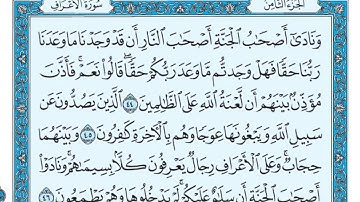 سُورَةُ الأَعْرَافِ الجُزْءُ الثَّامِنُ
وَنَادَىٰٓ أَصْحَٰبُ ٱلْجَنَّةِ أَصْحَٰبَ ٱلنَّارِ أَن قَدْ وَجَدْنَا مَا وَعَدَنَا
رَبُّنَا حَقًّا فَهَلْ وَجَدتُّم مَّا وَعَدَ رَبُّكُمْ حَقًّا ۖ قَالُوا۟ نَعَمْ ۚ فَأَذَّنَ
مُؤَذِّنٌۢ بَيْنَهُمْ أَن لَّعْنَةُ ٱللَّهِ عَلَى ٱلظَّٰلِمِينَ ٤٤ ٱلَّذِينَ يَصُدُّونَ عَن
سَبِيلِ ٱللَّهِ وَيَبْغُونَهَا عِوَجًا وَهُم بِٱلْءَاخِرَةِ كَٰفِرُونَ ٤٥ وَبَيْنَهُمَا
حِجَابٌ ۚ وَعَلَى ٱلْأَعْرَافِ رِجَالٌ يَعْرِفُونَ كُلًّۢا بِسِيمَىٰهُمْ ۚ وَنَادَوْا۟
أَصْحَٰبَ ٱلْجَنَّةِ أَن سَلَٰمٌ عَلَيْكُمْ ۚ لَمْ يَدْخُلُوهَا وَهُمْ يَطْمَعُونَ ٤٦